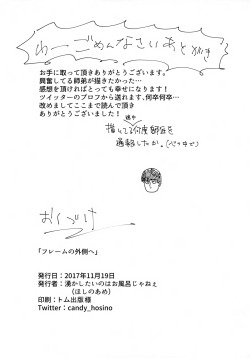 わーごめんなさいあとがき
お手に取って頂きありがとうございます。
興奮してる師弟が描きたかった…
感想を頂ければとっても幸せになります！
ツイッターのプロフから送れます、何卒何卒…
改めましてここまで読んで頂き
ありがとうございました！
途中
描いてて何度師匠を
通報したか。(心の中で)
おくづけ
「フレームの外側へ」
発行日：2017年11月19日
発行者：湧かしたいのはお風呂じゃねぇ
(ほしのあめ)
印刷：トム出版様
Twitter：candy_hosino